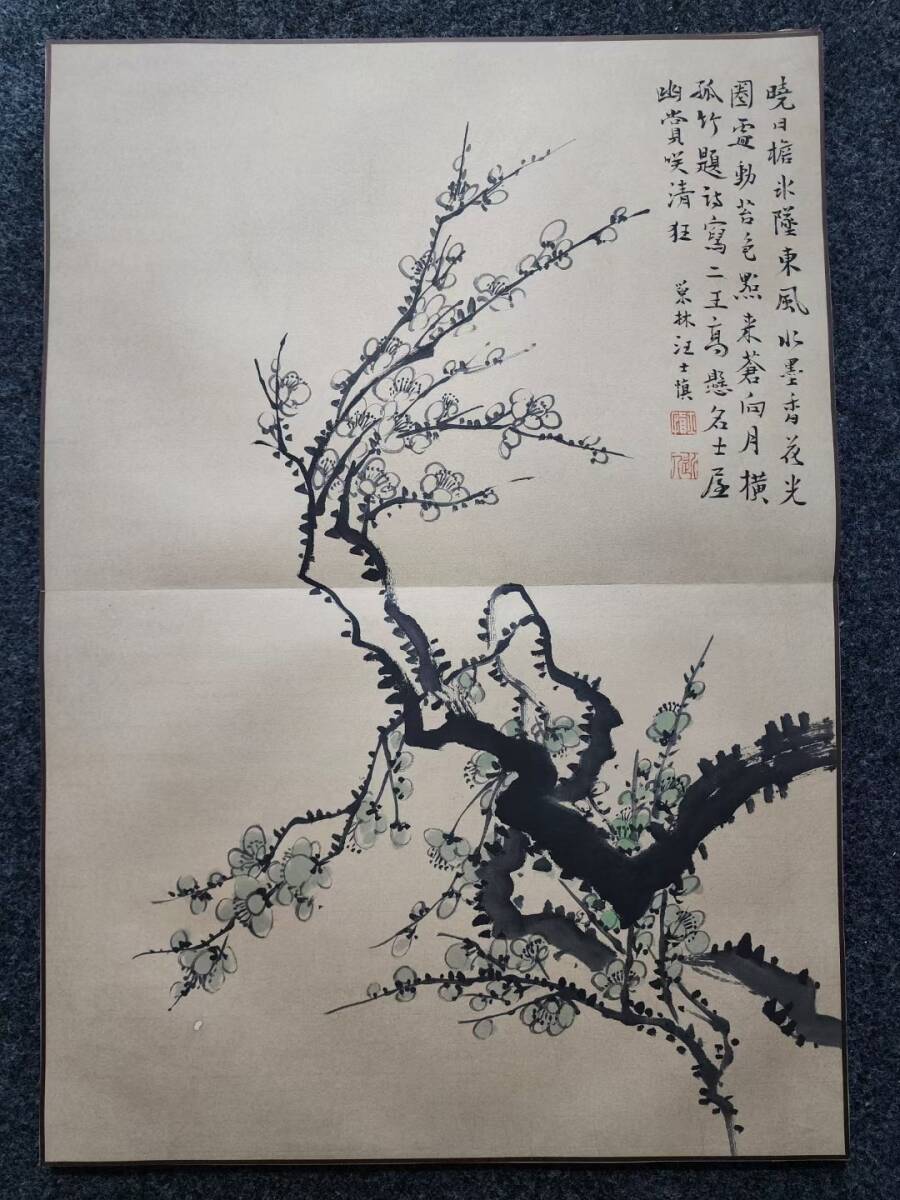 曉日檐氷墜東風水墨香花光
圈處動苔色點来蒼向月橫
孤竹題詩寫二王高懸名士屋
幽賞咲清狂
巢林汪士慎